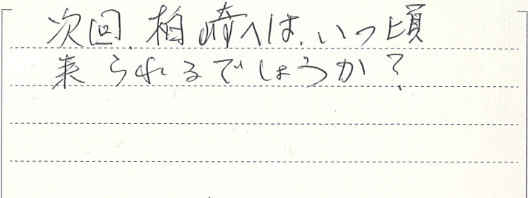 次回、柏崎へは、いつ頃
来られるでしょうか？